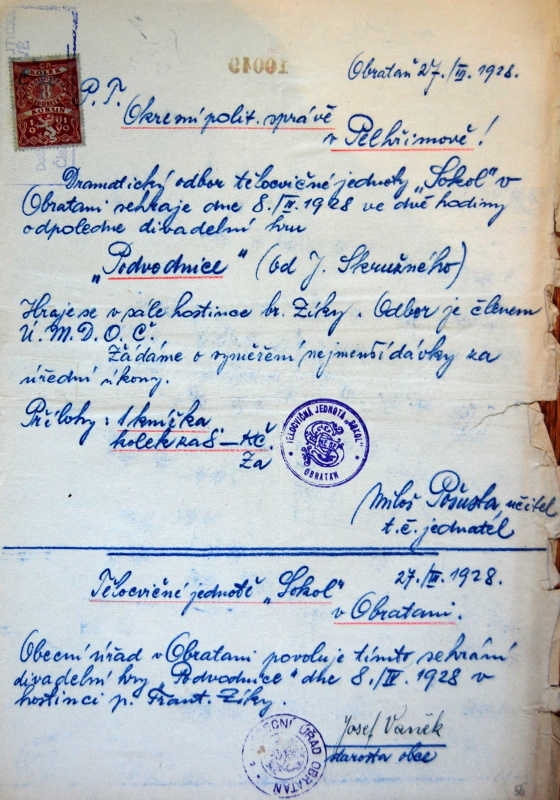 10049
Obrataň 27./III. 1928.
KOLEK
8
KORUN
P. T.
Okresní polit. správě
v Pelhřimově!
Dramatický odbor tělocvičné jednoty „Sokol" v
Obratani sehraje dne 8./IV. 1928 ve dvě hodiny
odpoledne divadelní hru
„Podvodnice" (od J. Skružného)
Hraje se v sále hostince br. Zíky. Odbor je členem
Ú. M. D. O. Č.
Žádáme o vyměření nejmenší dávky za
úřední úkony.
Přílohy: 1 knížka
kolek za 8 – Kč.
Za
TĚLOCVIČNÁ JEDNOTA „SOKOL"
OBRATAŇ
Miloš Pošusta, učitel
t. č. jednatel
27./III. 1928.
Tělocvičné jednotě „Sokol"
v Obratani.
Obecní úřad v Obratani povoluje tímto sehrání
divadelní hry „Podvodnice" dne 8./IV. 1928 v
hostinci p. Frant. Zíky.
OBECNÍ ÚŘAD OBRATAŇ
Josef Vaněk
starosta obce